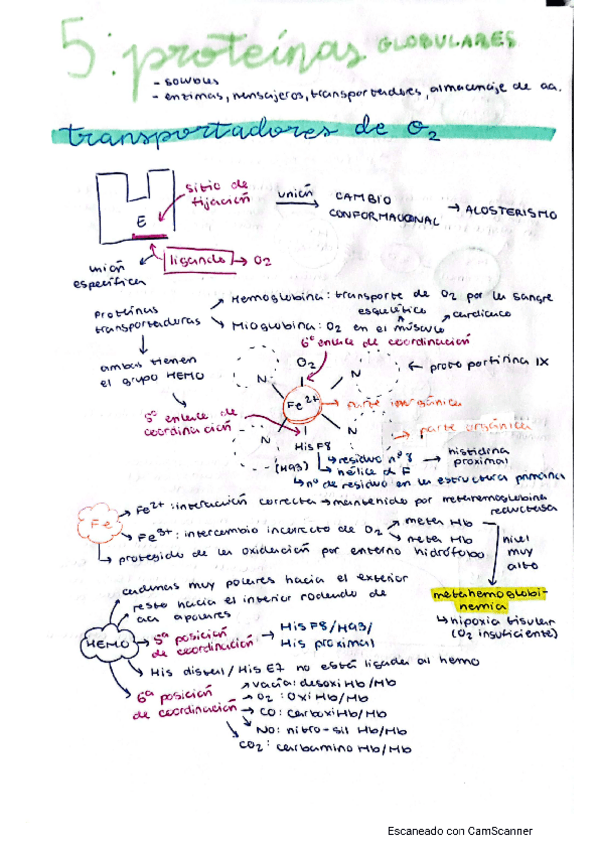 5. proteínas GLOBULARES
- solubles
- enzimas, mensajeros, transportadores, almacenaje de aa.
transportadores de O2
sitio de fijación
unión
CAMBIO CONFORMACIONAL → ALOSTERISMO
E
ligando → O2
unión específica
Proteínas transportadoras
Hemoglobina: transporte de O2 por la sangre
Mioglobina: O2 en el músculo
esquelético
cardíaco
6º enlace de coordinación
ambas tienen el grupo HEMO
O2
N
N
← protoporfirina IX
Fe2+ → parte inorgánica
5º enlace de coordinación
N
N
→ parte orgánica
His F8
(H93)
residuo nº 8 → histidina proximal
hélice d F
nº de residuo en la estructura primaria
Fe
Fe2+: interacción correcta → mantenido por metahemoglobina reductasa
Fe3+: intercambio incorrecto de O2
meta Hb
meta Mb
nivel muy alto
protegido de la oxidación por entorno hidrófobo
metahemoglobi-
nemia
hipoxia tisular
(O2 insuficiente)
HEMO
cadenas muy polares hacia el exterior
resto hacia el interior rodeado de aa apolares
5ª posición de coordinación → His F8/H93/ His proximal
His distal/His E7 no está ligada al hemo
6ª posición de coordinación
vacía: desoxi Hb/Mb
O2: Oxi Hb/Mb
CO: carboxi Hb/Mb
NO: nitro-sil Hb/Mb
CO2: carbamino Hb/Mb
Escaneado con CamScanner